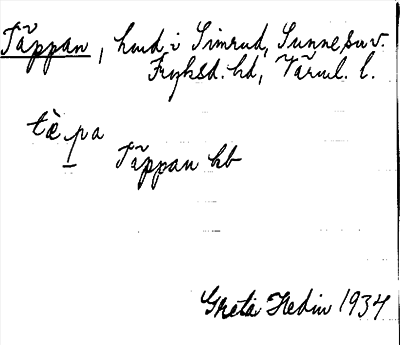 Täppan, hmd i Simrud, Sunne sn v.
Fryksd. hd, Värml. l.
tè̀pa
Täppan hb
Greta Hedin 1934